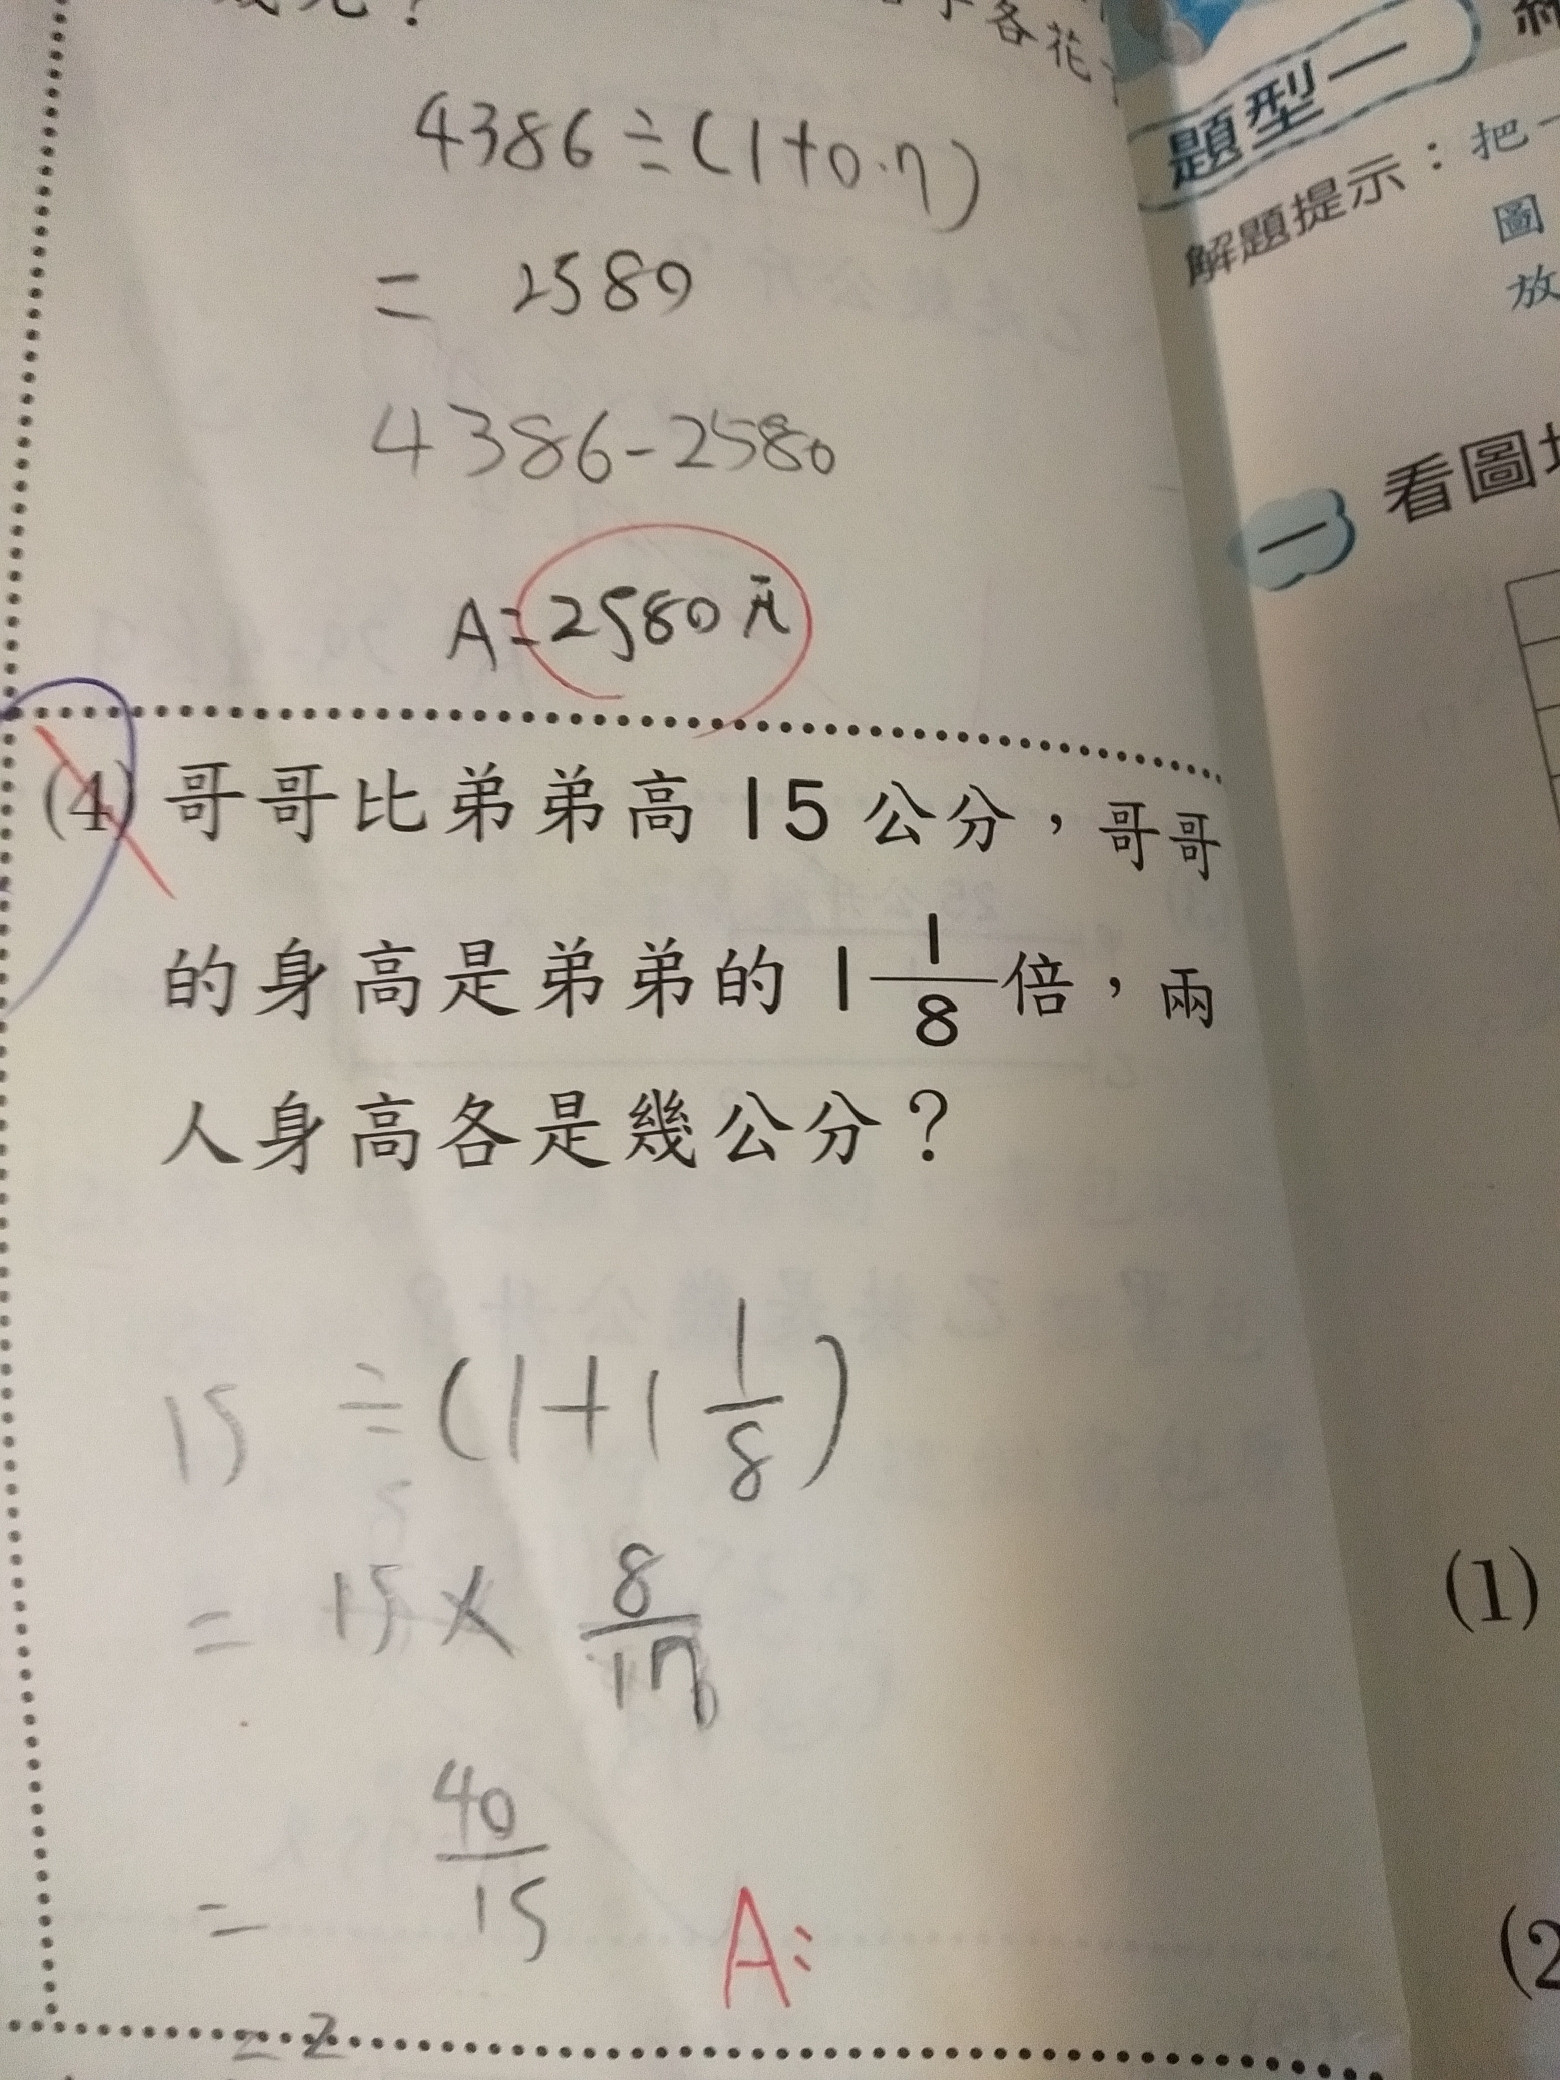 各花
4386÷(1+0.7)
= 2580
4386-2580
A=2580元
(4) 哥哥比弟弟高 15 公分，哥哥
的身高是弟弟的 1 1/8 倍，兩
人身高各是幾公分？
15 ÷(1+1 1/8)
= 15 × 8/17
= 40/15
= 2
A:
題型一
解題提示：把一
圖
放
一 看圖
(1)
(2